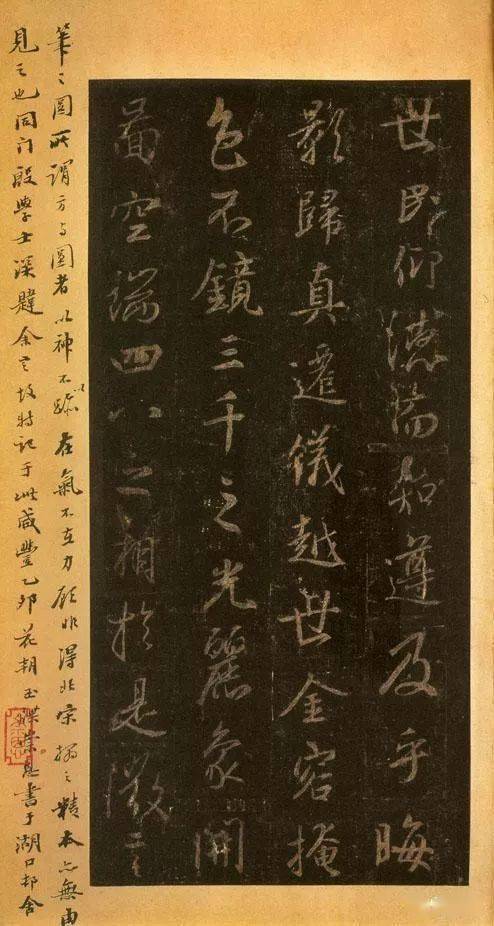 世民仰德而知遵及乎晦
影歸真遷儀越世金容掩
色不鏡三千之光麗象開
啚空端四八之相於是微言
筆之圓所謂方与圓者以神不以跡在氣不在力顧非得北宋搨之精本亦無由
見之也同门殷學士深韙余言故特記于此咸豐乙卯花朝玉牒崇恩書于湖口邨舍